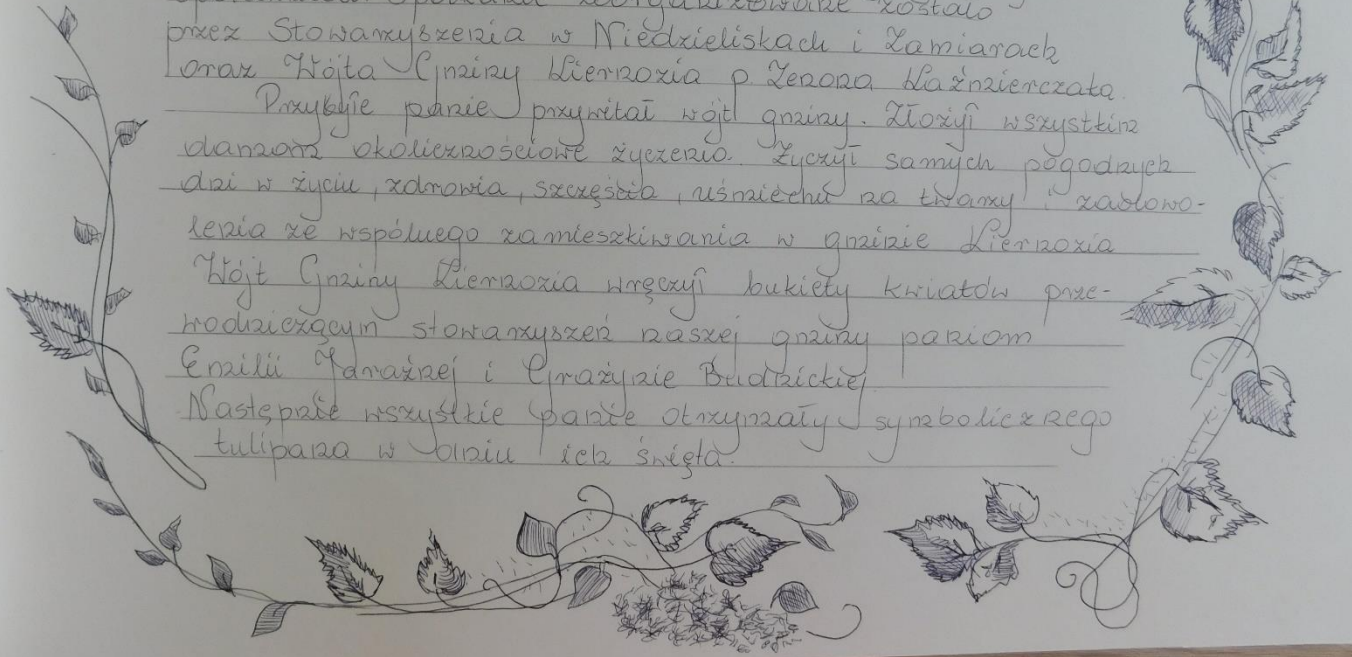 zorganizowane zostało
przez Stowarzyszenia w Niedzieliskach i Zamiarach
oraz Wójta Gminy Kiernozia p. Zenona Kaźmierczaka.
Przybyłe panie przywitał wójt gminy. Złożył wszystkim
damom okolicznościowe życzenia. Życzył samych pogodnych
dni w życiu, zdrowia, szczęścia, uśmiechu na twarzy i zadowo-
lenia ze wspólnego zamieszkiwania w gminie Kiernozia
Wójt Gminy Kiernozia wręczył bukiety kwiatów prze-
wodniczącym stowarzyszeń naszej gminy paniom
Emilii Zdrażnej i Grażynie Budnickiej
Następnie wszystkie panie otrzymały symbolicznego
tulipana w dniu ich święta.